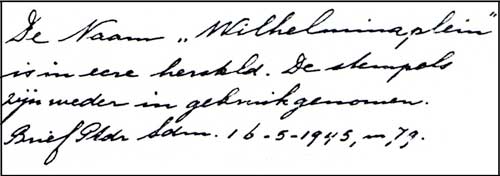 De Naam „Wilhelminaplein"
is in eere hersteld. De stempels
zijn weder in gebruik genomen.
Brief Pkdr Sdm. 16-5-1945, n, 79.